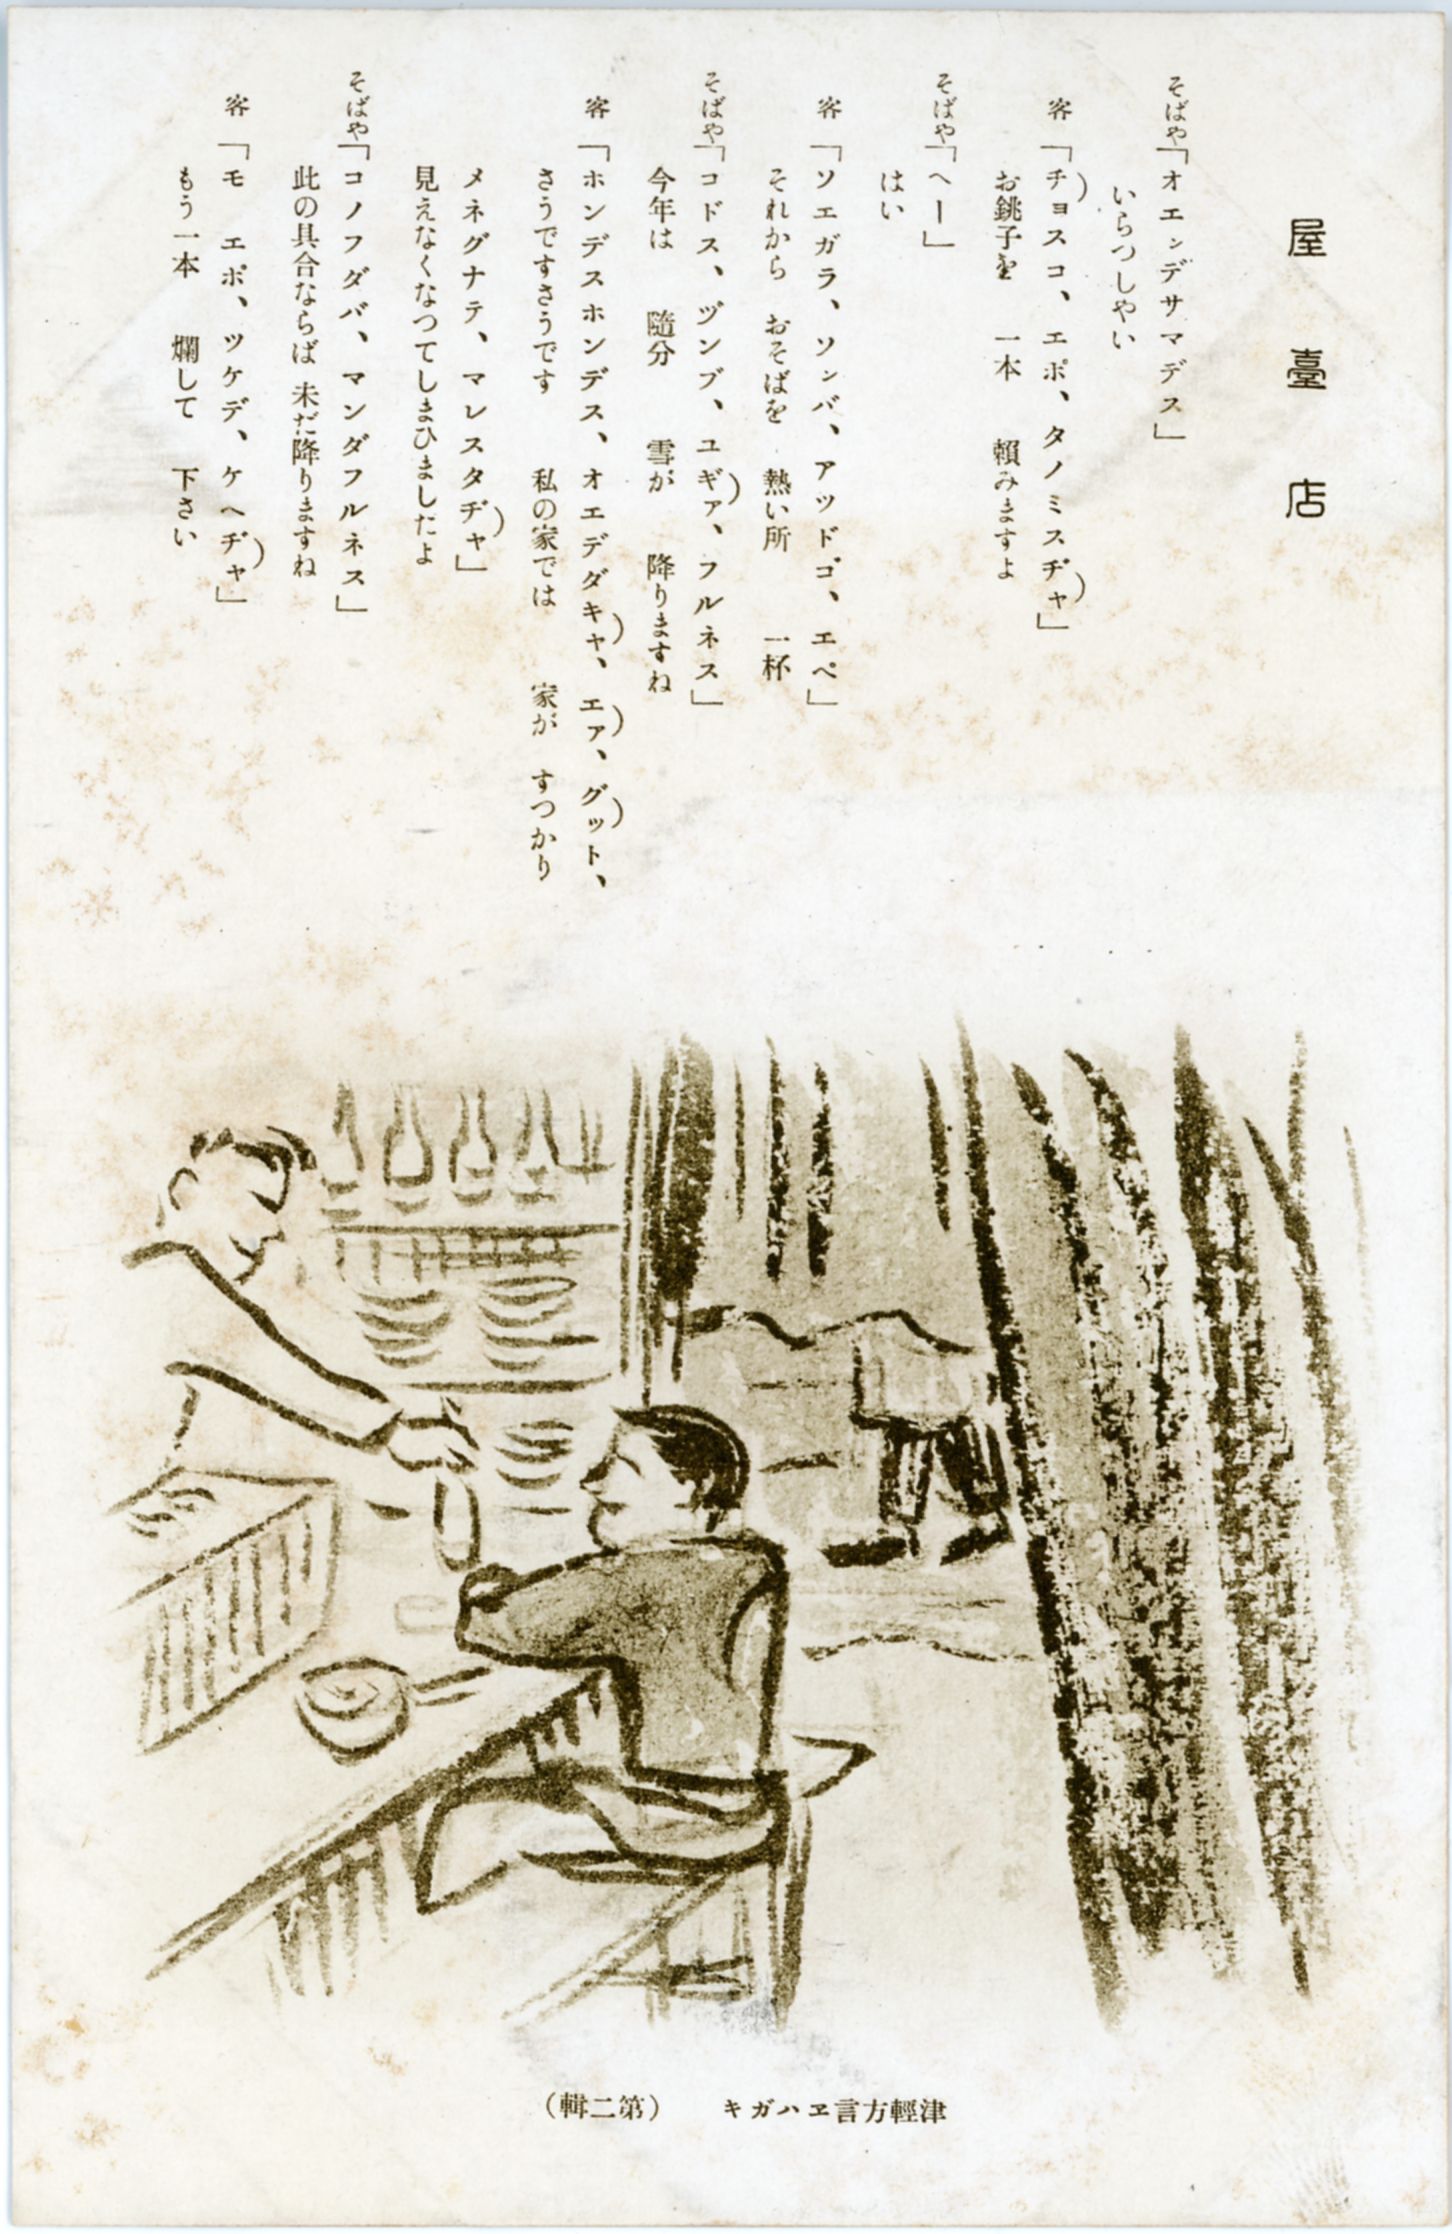 屋臺店
そばや「オエンデサマデス」
いらつしやい
客「チョスコ、エポ、タノミスヂャ」
お銚子を 一本 頼みますよ
そばや「ヘー」
はい
客「ソエガラ、ソンバ、アツドゴ、エペ」
それから おそばを 熱い所 一杯
そばや「コドス、ヅンブ、ユギァ、フルネス」
今年は 隨分 雪が 降りますね
客「ホンデスホンデス、オエデダキャ、エァ、グット、
さうですさうです 私の家では 家が すつかり
メネグナテ、マレスタヂャ」
見えなくなつてしまひましたよ
そばや「コノフダバ、マンダフルネス」
此の具合ならば 未だ降りますね
客「モ エポ、ツケデ、ケヘヂャ」
もう一本 爛して 下さい
津輕方言ヱハガキ （第二輯）